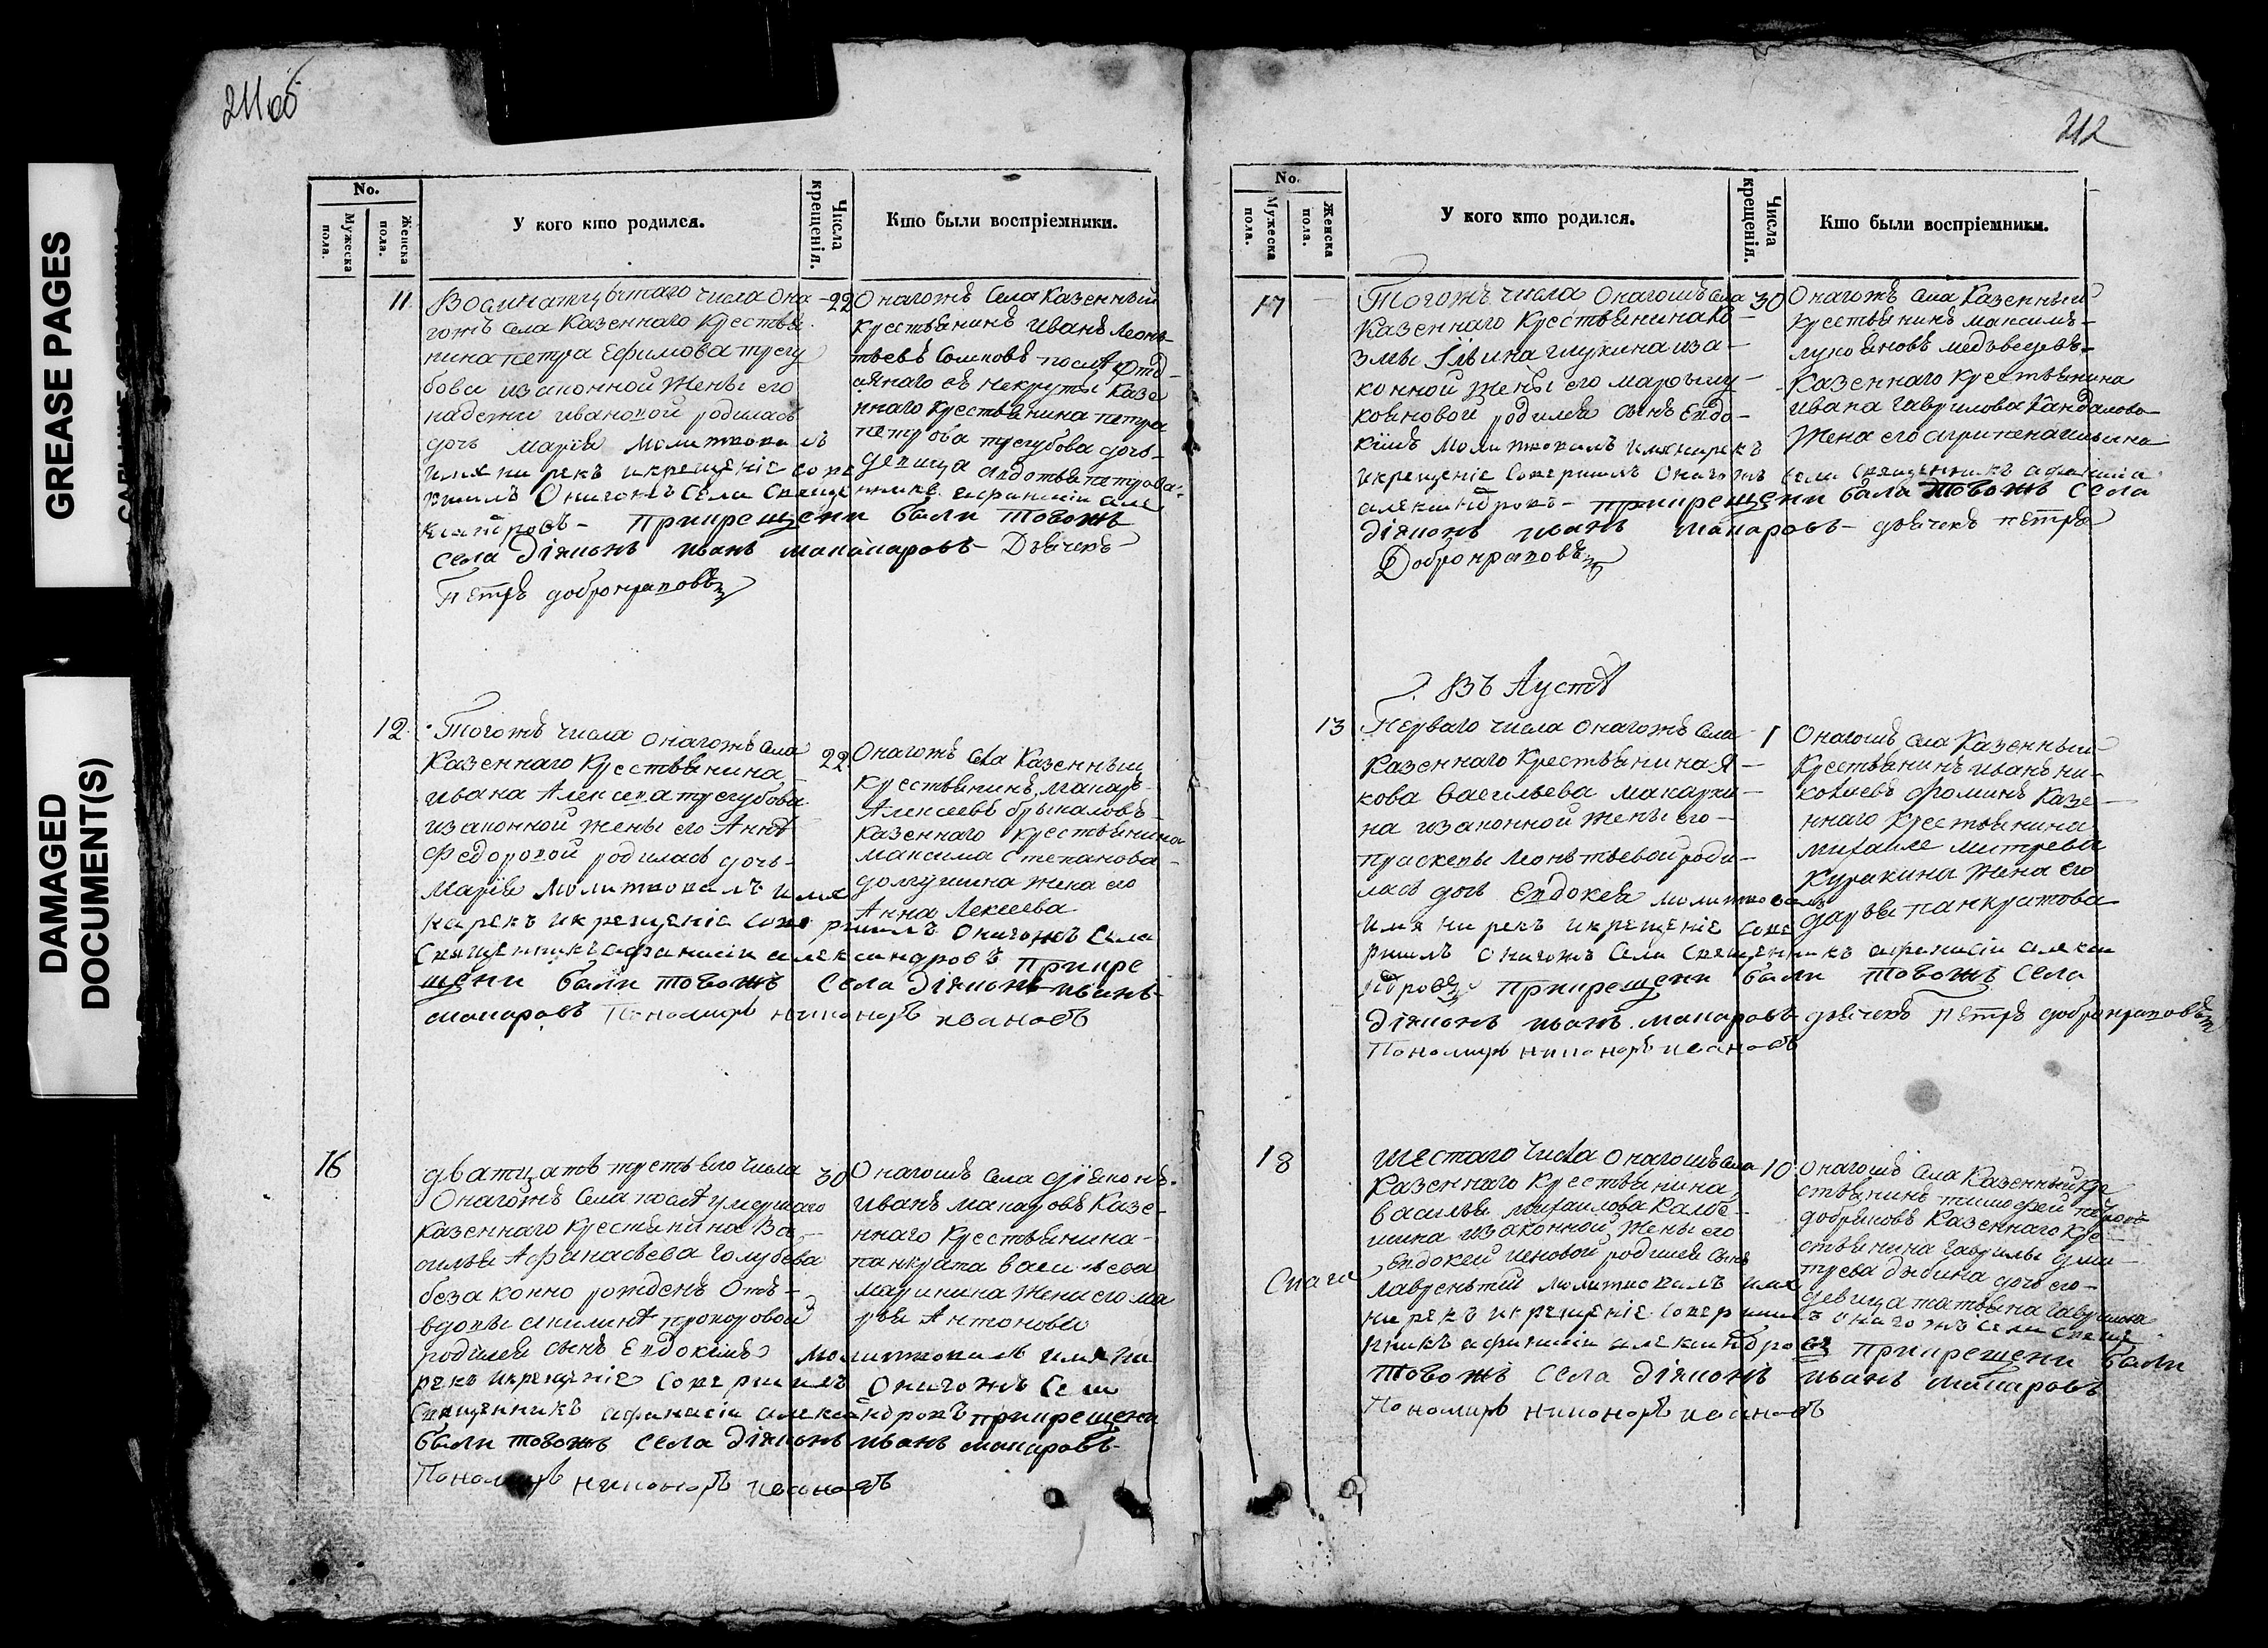 GREASE PAGES
DAMAGED
DOCUMENT(S)
211об
No.
Мужеска пола.
Женска пола.
У кого кто родился.
Числа крещенія.
Кто были воспріемники.
11.
числа она
готъ села Казеннаго Крестья
нина петра Ефимова трегу
бова изаконной жены его
надежи ивановой родилась
дочь марія молитвовалъ
имя нарекъ и крещеніе сове
ршилъ Онагожъ Села Свяще нникъ афанасіи але
ксандровъ - прикрещени были товожъ
села діяконъ иванъ макаровъ - Дьячекъ
Петръ добронравовъ
22
Онагожъ Села Казенный
крестьянинъ иванъ Леонъ
тьевъ послѣ отд
аянаго въ некруты казе
ннаго Крестьянина петра
петрова трегубова дочь
девица авдотья петрова
12.
Тогожъ числа онагожъ села
Казеннаго Крестьянина
ивана Алексева трегубова
изаконной жены его Анны
Федоровой родилась дочь
Марія молитвовалъ имя
нарекъ и крещеніе сове ршилъ Онагожъ Села
Священникъ афанасіи александровъ прикре
щени были товожъ села діяконъ иванъ
макаровъ Пономарь никоноръ ивановъ
22
Онагожъ села Казенныи
крестьянинъ макаръ
Алексеевъ брыкаловъ
казеннаго крестьянина
максима степанова
жена его
Анна Лексеева
16
дватцать третьяго числа
Онагожъ Села послѣ умершаго
казеннаго крестьянина Ва
силья Афанасьева Голубева
безаконно рожденъ Отъ
вдовы акилины прохоровой
родился сынъ Евдокимъ молитвовалъ имя на
рекъ и крещеніе совершилъ Онагожъ Села
Священникъ афанасіи александровъ прикрещени
были товожъ села діяконъ иванъ макаровъ
Пономарь никоноръ ивановъ
30
Онагожъ села діяконъ
иванъ макаровъ Казе
ннаго Крестьянина
панкрата васильева
маринина жена его ма
рья Антонова
212
No.
Мужеска пола.
Женска пола.
У кого кто родился.
Числа крещенія.
Кто были воспріемники.
17
Тогожъ числа Онагожъ села
Казеннаго Крестьянина Ко
змы Ильина глухина иза
конной жены его марфы лу
кояновой родился сынъ Евдо
кимъ молитвовалъ имянарекъ
и крещеніе совершилъ Онагожъ села священникъ афанасіи
александровъ - прикрещени были товожъ села
діяконъ иванъ макаровъ - дьячекъ петръ
Добронравовъ
30
Онагожъ села Казенный
крестьянинъ максимъ
лукояновъ медъведевъ
Казеннаго крестьянина
ивана гаврилова Кандалова
жена его агрипена ильина
Въ Аустѣ
13
Перваго числа онагожъ села
казеннаго крестьянина Я
кова Васильева макарки
на изаконной жены его
праскевы леонътьевой роди
лась дочь Евдокея молитвовалъ
имя нарекъ и крещеніе сове
ршилъ онагожъ села священникъ афанасіи алекса
ндровъ прикрещени были товожъ села
діяконъ иванъ макаровъ дьячекъ Петръ добронравовъ
Пономарь никоноръ ивановъ
1
Онагожъ села Казенный
Крестьянинъ иванъ ни
колаевъ Фоминъ казе
ннаго крестьянина
михаиле митрева
куракина жена его
дарья панкратова
18
шестаго числа онагожъ села
Казеннаго крестьянина
василья михаилова
изаконной жены его
Евдокеи родился сынъ
лаврентий молитвовалъ имя
нарекъ и крещеніе совершилъ онагожъ села свяще
нникъ афанасіи александровъ прикрещени были
товожъ села діяконъ иванъ макаровъ
Пономарь никоноръ ивановъ
10
онагожъ села Казенный кре
стьянинъ тимофей петровъ
добряковъ казеннаго кре
стьянина гаврилы дми
трева дочь его
девица татьяна гаврилова